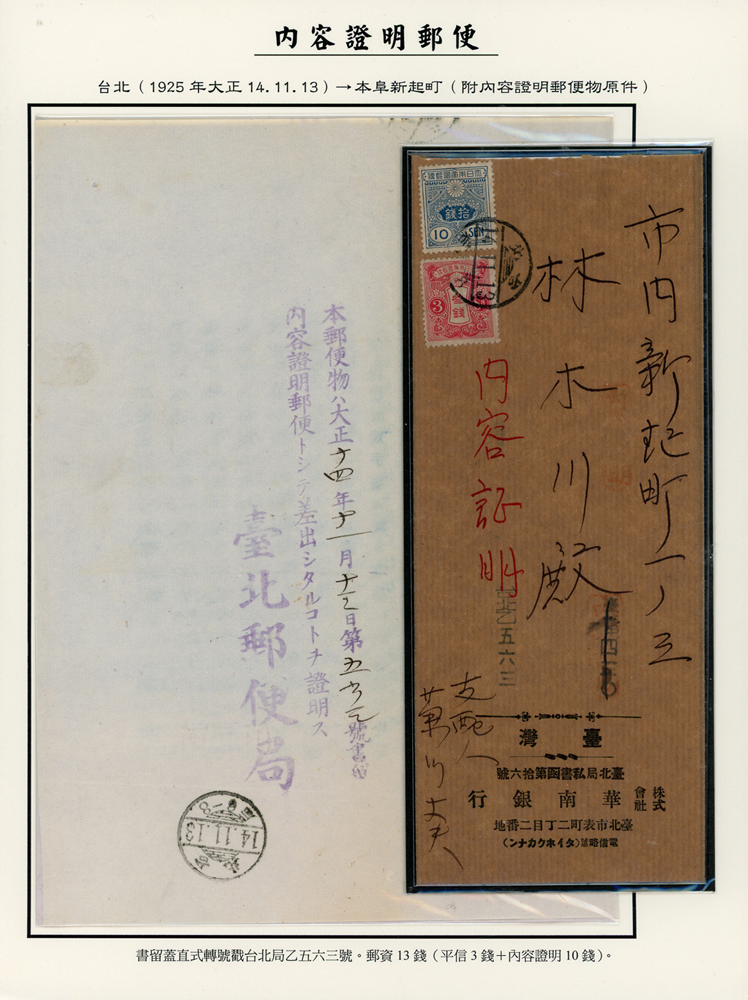 內容證明郵便
台北（1925 年大正 14.11.13）→本阜新起町（附內容證明郵便物原件）
大日本帝國郵便
拾錢
10 SEN
3
參錢
14.11.13
市内新起町一ノ三
林木川殿
内容証明
台北乙五六三
支配人
臺灣
臺北局私書函第拾六號
株式會社 華南銀行
臺北市表町二丁目二番地
電信略號(タイホクカナン)
本郵便物ハ大正十四年十一月十三日第五六三號書留
内容證明郵便トシテ差出シタルコトヲ證明ス
臺北郵便局
14.11.13
書留蓋直式轉號戳台北局乙五六三號。郵資 13 錢（平信 3 錢＋內容證明 10 錢）。